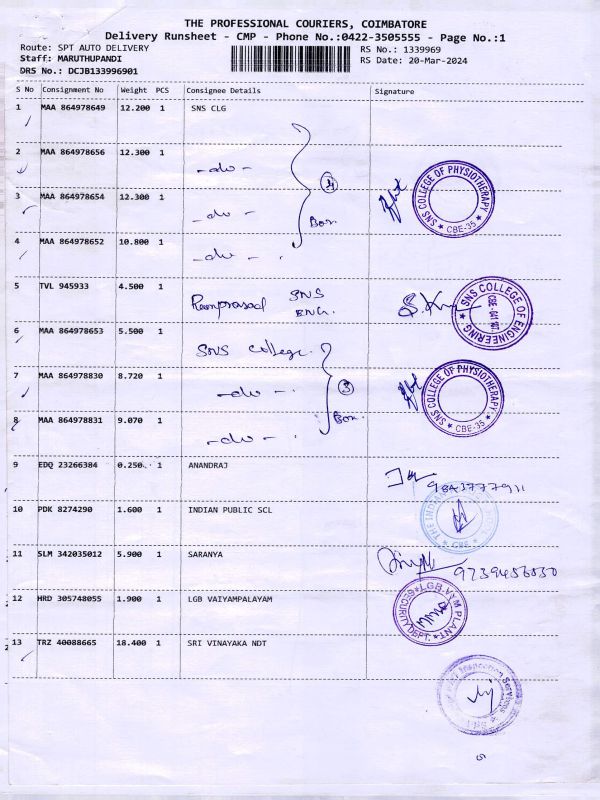 THE PROFESSIONAL COURIERS, COIMBATORE
Delivery Runsheet - CMP - Phone No.:0422-3505555 - Page No.:1
Route: SPT AUTO DELIVERY
RS No.: 1339969
Staff: MARUTHUPANDI
RS Date: 20-Mar-2024
DRS No.: DCJB133996901
S No Consignment No Weight PCS Consignee Details Signature
1 MAA 864978649 12.200 1 SNS CLG
2 MAA 864978656 12.300 1 -do-
3 MAA 864978654 12.300 1 -do-
4 Box.
SNS COLLEGE OF PHYSIOTHERAPY
* CBE-35 *
4 MAA 864978652 10.800 1 -do-
5 TVL 945933 4.500 1 Ramprasad SNS ENG.
SNS COLLEGE OF ENGINEERING
6 MAA 864978653 5.500 1 SNS College.
7 MAA 864978830 8.720 1 -do-
3 Box.
SNS COLLEGE OF PHYSIOTHERAPY
* CBE-35 *
8 MAA 864978831 9.070 1 -do-
9 EDQ 23266384 0.250 1 ANANDRAJ
10 PDK 8274290 1.600 1 INDIAN PUBLIC SCL
THE INDIAN
* CBE *
11 SLM 342035012 5.900 1 SARANYA
9739456030
12 HRD 305748055 1.900 1 LGB VAIYAMPALAYAM
LGB. VYM PLANT
SECURITY DEPT.
13 TRZ 40088665 18.400 1 SRI VINAYAKA NDT
Inspection Services